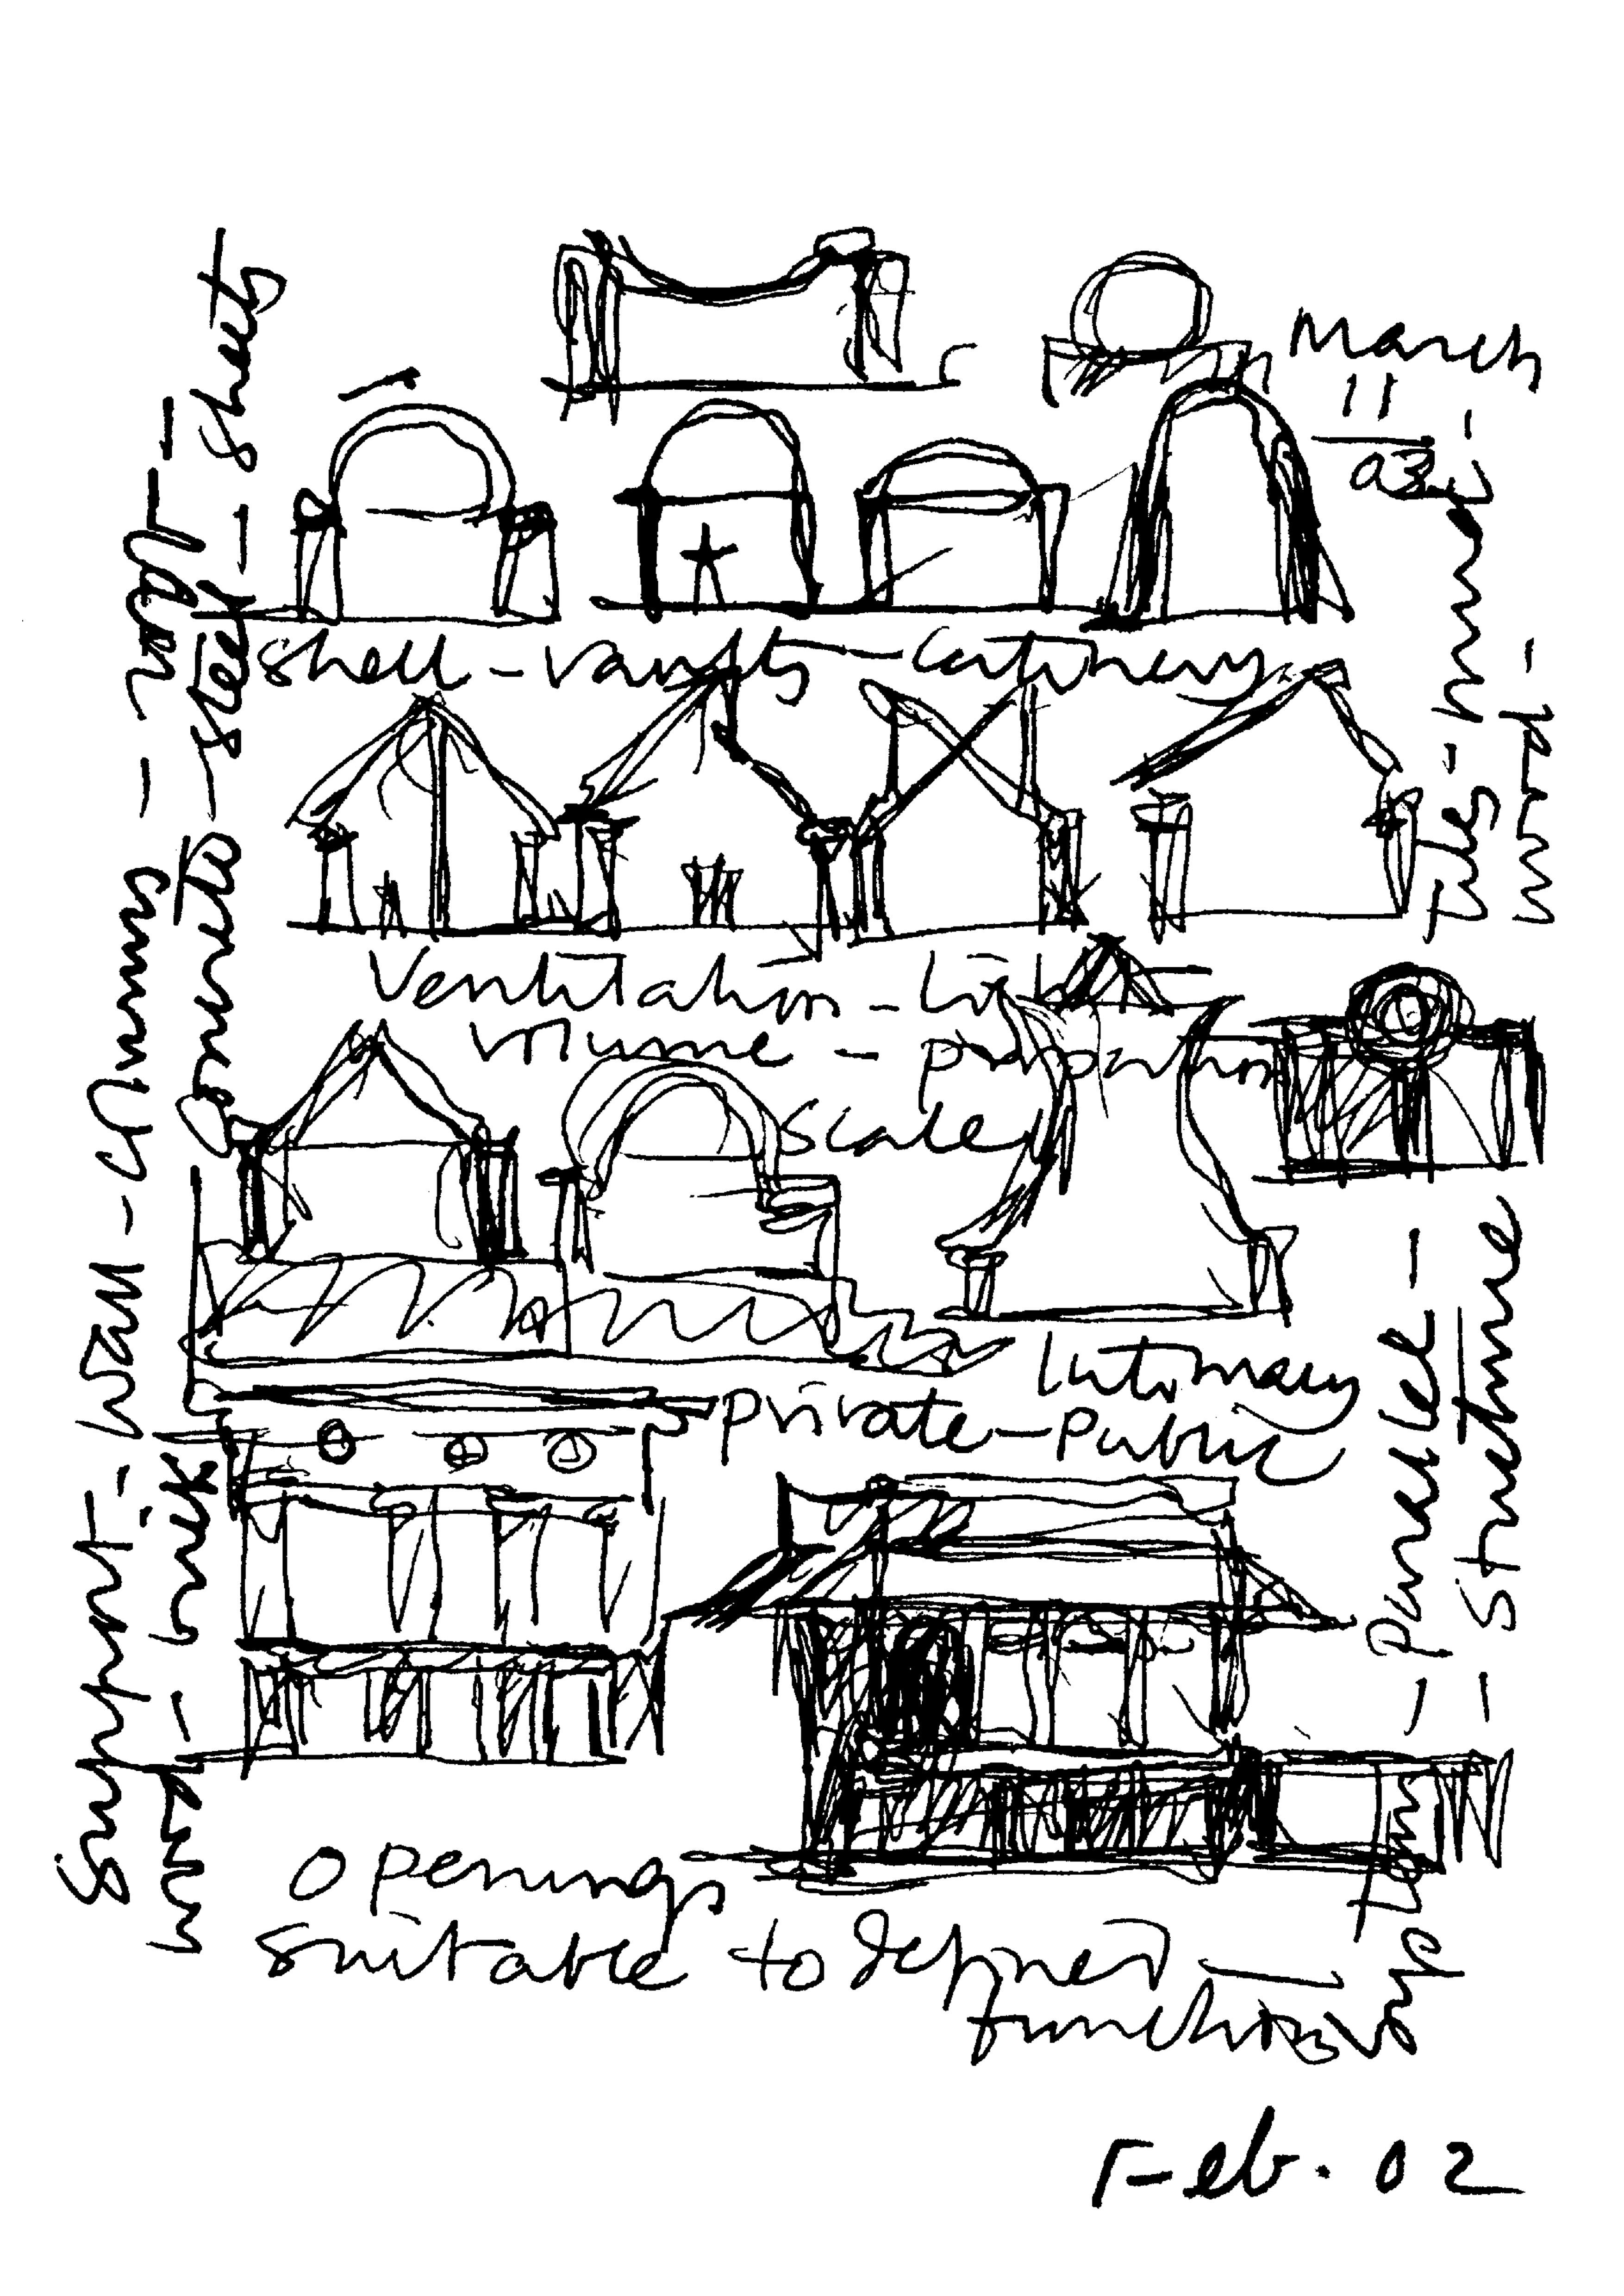 March
11
03
shell - vaults - Catinery
Ventilation - Li
volume - proportion
scale
Intimacy
private - Public
Openings
suitable to defined -
functions
Support - Wall - Columns - roof -
- brick - Concrete - steel - sheets
- Parallel -
- Structure
Tiles -
Feb. 02